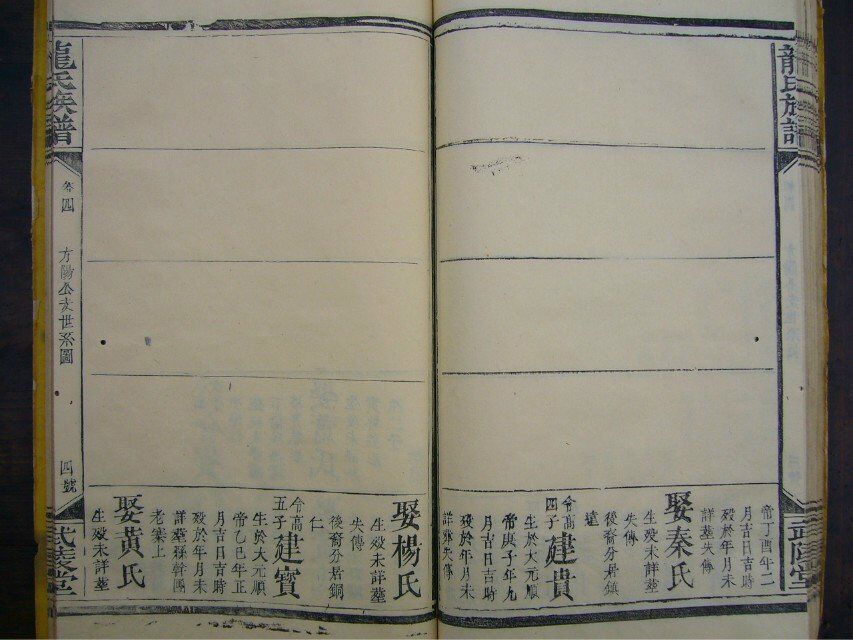 龍氏族譜
武陵堂
帝丁酉年二
月吉日吉時
歿於年月未
詳墓失傳
娶秦氏
生歿未詳墓
失傳
後裔分居鎮
遠
令高四子
建貴
生於大元順
帝庚子年九
月吉日吉時
歿於年月未
詳葬失傳
娶楊氏
生歿未詳墓
失傳
後裔分居銅
仁
令高五子
建寶
生於大元順
帝乙巳年正
月吉日吉時
歿於年月未
詳葬
老寨上
娶黃氏
生歿未詳墓
龍氏族譜
卷四
方陽公支世系圖
四號
武陵堂